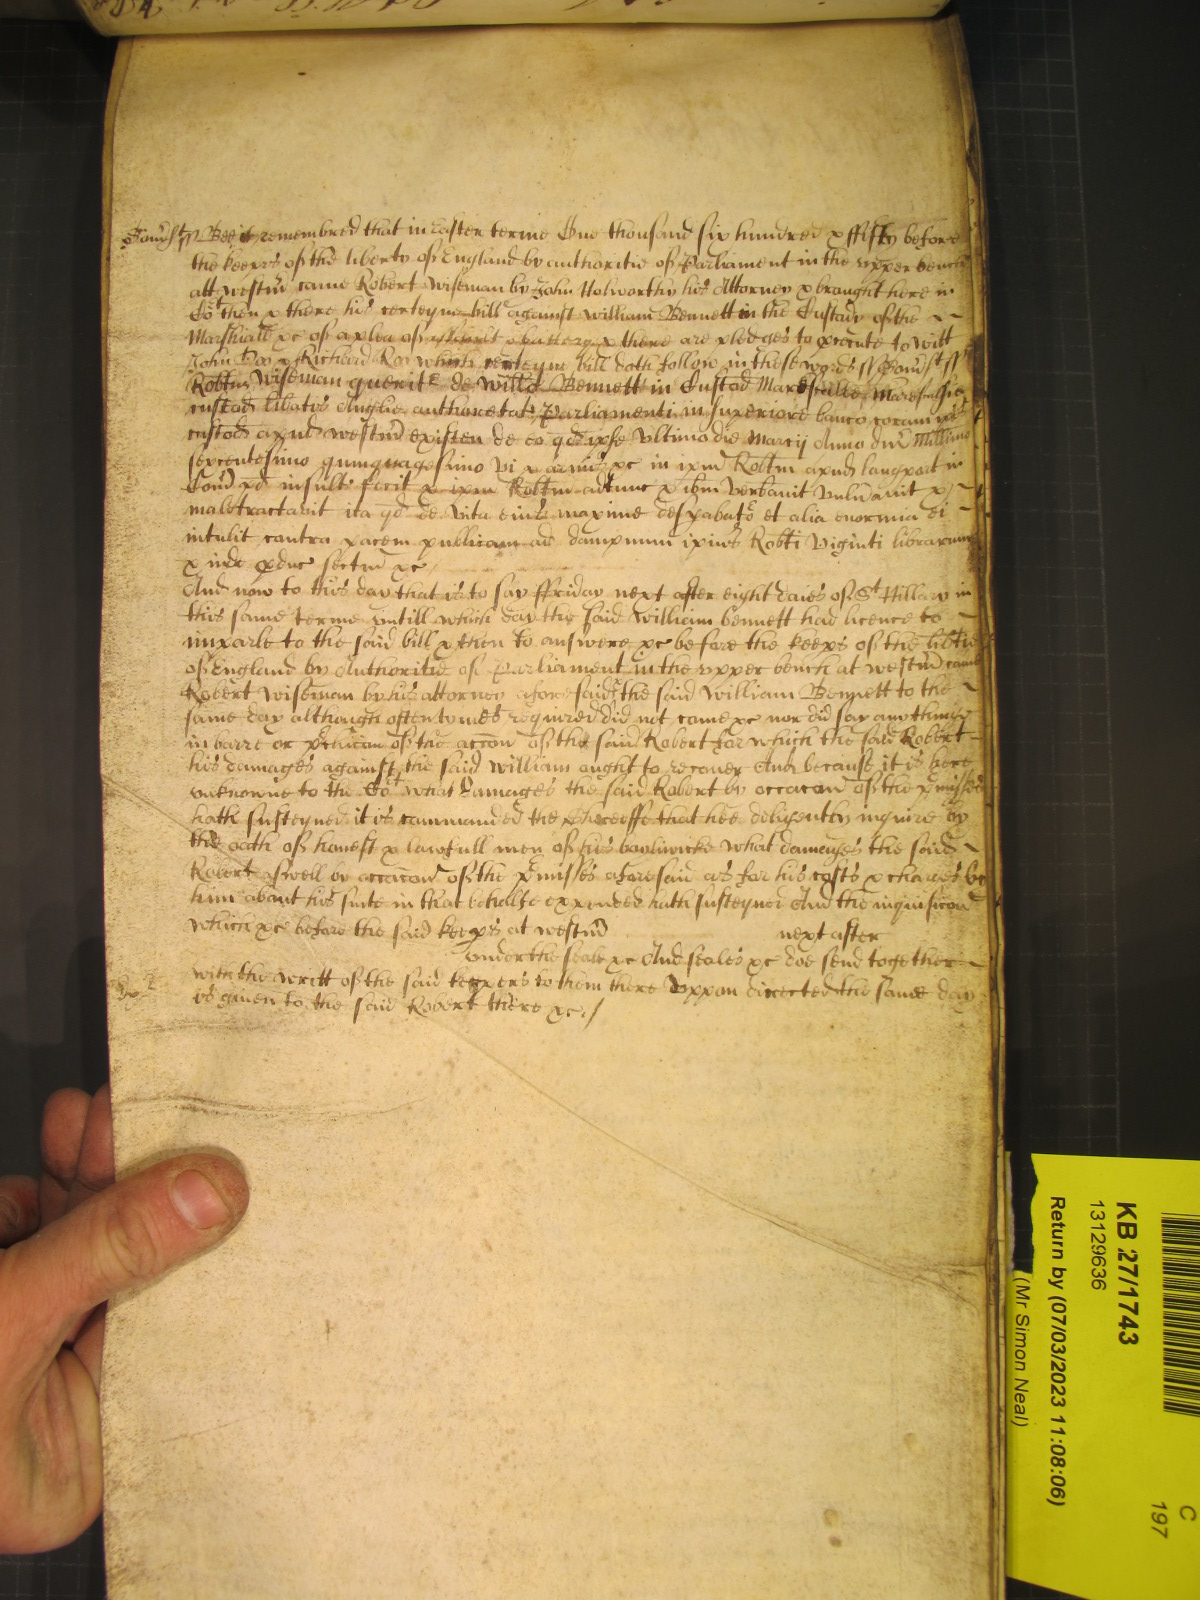 Som̃st ss Bee it remembred that in Easter terme One thousand six hundred & ffifty before
the keepers of the liberty of England by authoritie of Parliament in the upper bench
att Westm̃ came Robert Wiseman by John Holworthy his Attorney & brought here in
Cot then & there his certeyne bill against William Bennett in the Custody of the
Marshall &c of a plea of assault & battery & there are pledges to prosecute to witt
John Doo & Richard Roo which certeyne bill doth follow in these words ss Som̃st ss
Robtus Wiseman querit de Willo Bennett in Custod Marescalli Maresealsie
custod libtatis Anglie authoritate Parliamenti in superiore banco coram ip̃is
custod apud Westm̃ existen de eo qd ipse ultimo die Marcij Anno Dn̄i Millimo
sexcentesimo quinquagesimo vi & armis &c in ip̃m Robtm apud langport in
Com̃ p̃d insult fecit & ip̃m Robtm adtunc & ib̃m verbavit vuln̄avit &
maletractavit ita qd de vita eius maxime desp̱abatr et alia enormia ei
intulit contra pacem publicam ad dampnum ip̃ius Robti viginti librarum
& inde p̱duc sectam &c
And now to this day that is to say ffriday next after eight daies of St Hillary in
this same terme untill which day the said William bennett had licence to
imparle to the said bill & then to answere &c before the keeps of the libtie
of England by Authoritie of Parliament in the upper bench at Westm̃ came
Robert Wiseman by his attorney aforesaid & the said William Bennett to the
same day although oftentymes required did not come &c nor did say anythinge
in barre or p̃clusion of the accon̄ of the said Robert for which the said Robert
his damages against the said William ought to recover And because it is here
unknowne to the Cot what damages the said Robert by occacon̄ of the p̃misses
hath susteyned it is commanded the Shereiffe that hee diligently inquire by
the oath of honest & lawfull men of his bayliwicke what damages the said
Robert aswell by occacon̄ of the p̃misses aforesaid as for his costs & charges by
him about his suite in that behalfe expended hath susteyned And the inquisicon̄
which &c before the said keeps at Westm̃ next after
under the seale &c And seales &c doe send together
with the writt of the said keepers to them there uppon directed the same day
is given to the said Robert there &c./
KB 27/1743
13129636
Return by (07/03/2023 11:08:06)
(Mr Simon Neal)
C
197